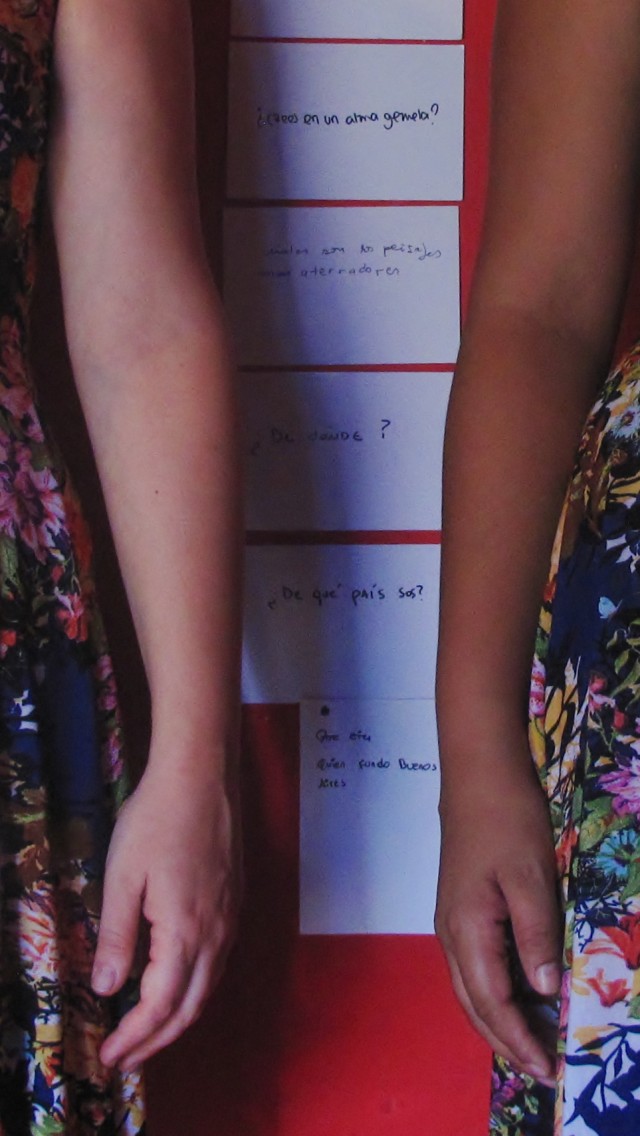 ¿Crees en un alma gemela?
son los paisajes
aterradores
¿DE DONDE?
¿De qué país sos?
quien fundo Buenos
Aires